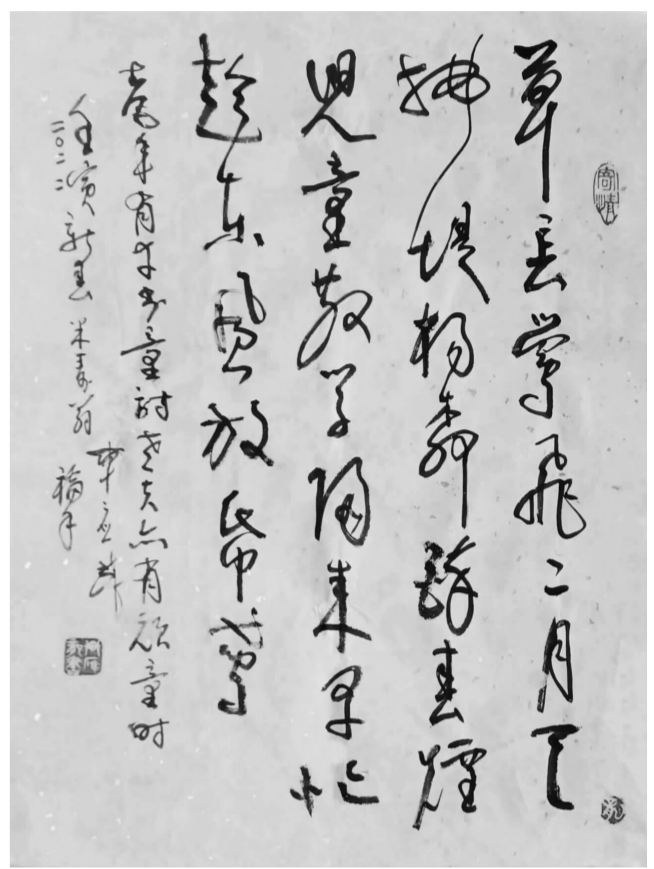 草長鶯飛二月天
拂堤楊柳醉春煙
兒童散學歸來早忙
趁東風放紙鳶
年有幸書童詩老夫亦有頑童時
壬寅新春米壽翁
二〇二二